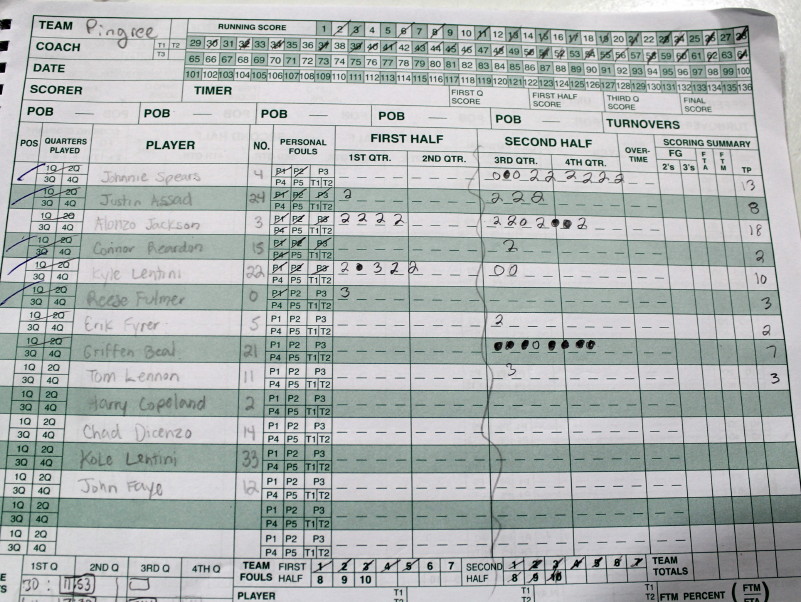 TEAM Pingree RUNNING SCORE 1 2 3 4 5 6 7 8 9 10 11 12 13 14 15 16 17 18 19 20 21 22 23 24 25 26 27 28
COACH T1 T2 T3 29 30 31 32 33 34 35 36 37 38 39 40 41 42 43 44 45 46 47 48 49 50 51 52 53 54 55 56 57 58 59 60 61 62 63 64
DATE 65 66 67 68 69 70 71 72 73 74 75 76 77 78 79 80 81 82 83 84 85 86 87 88 89 90 91 92 93 94 95 96 97 98 99 100
101 102 103 104 105 106 107 108 109 110 111 112 113 114 115 116 117 118 119 120 121 122 123 124 125 126 127 128 129 130 131 132 133 134 135 136
SCORER TIMER FIRST Q SCORE FIRST HALF SCORE THIRD Q SCORE FINAL SCORE
POB POB POB POB TURNOVERS
POS QUARTERS PLAYED PLAYER NO. PERSONAL FOULS FIRST HALF SECOND HALF OVER-TIME SCORING SUMMARY
1ST QTR. 2ND QTR. 3RD QTR. 4TH QTR. FG 2's 3's FTA FTM TP
1Q 2Q 3Q 4Q Johnnie Spears 4 P1 P2 P3 P4 P5 T1 T2 0 0 0 2 2 2 2 2 2 13
1Q 2Q 3Q 4Q Justin Assad 24 P1 P2 P3 P4 P5 T1 T2 2 2 2 2 8
1Q 2Q 3Q 4Q Alonzo Jackson 3 P1 P2 P3 P4 P5 T1 T2 2 2 2 2 2 2 0 2 2 18
1Q 2Q 3Q 4Q Connor Reardon 15 P1 P2 P3 P4 P5 T1 T2 2 2
1Q 2Q 3Q 4Q Kyle Lentini 22 P1 P2 P3 P4 P5 T1 T2 2 3 2 2 0 0 10
1Q 2Q 3Q 4Q Reese Fulmer 0 P1 P2 P3 P4 P5 T1 T2 3 3
1Q 2Q 3Q 4Q Erik Fyrer 5 P1 P2 P3 P4 P5 T1 T2 2 2
1Q 2Q 3Q 4Q Griffen Beal 21 P1 P2 P3 P4 P5 T1 T2 7
1Q 2Q 3Q 4Q Tom Lennon 11 P1 P2 P3 P4 P5 T1 T2 3 3
1Q 2Q 3Q 4Q Harry Copeland 2 P1 P2 P3 P4 P5 T1 T2
1Q 2Q 3Q 4Q Chad Dicenzo 14 P1 P2 P3 P4 P5 T1 T2
1Q 2Q 3Q 4Q Kole Lentini 33 P1 P2 P3 P4 P5 T1 T2
1Q 2Q 3Q 4Q John Faye 12 P1 P2 P3 P4 P5 T1 T2
1Q 2Q 3Q 4Q P1 P2 P3 P4 P5 T1 T2
1Q 2Q 3Q 4Q P1 P2 P3 P4 P5 T1 T2
1ST Q 2ND Q 3RD Q 4TH Q TEAM FOULS FIRST HALF 1 2 3 4 5 6 7 8 9 10 SECOND HALF 1 2 3 4 5 6 7 8 9 10 TEAM TOTALS
3D: 11:53
PLAYER T1 T2 T1 T2 FTM PERCENT (FTM FTA)